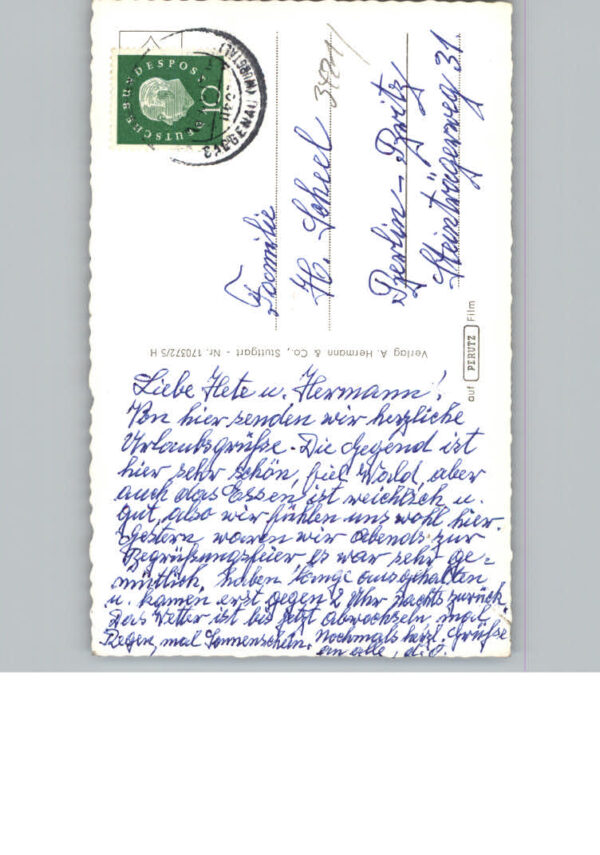 DEUTSCHE BUNDESPOST
10
Familie
H. Scheel
Berlin-Britz
Steinträgerweg 31
Verlag A. Hermann & Co., Stuttgart - Nr. 170372/5 H
auf PERUTZ Film
Liebe Hete u. Hermann!
Von hier senden wir herzliche
Urlaubsgrüße. Die Gegend ist
hier sehr schön, fiel Wald, aber
auch das Essen ist reichlich u.
gut, also wir fühlen uns wohl hier.
Gestern waren wir abends zur
Begrüßungsfeier, es war sehr ge-
mütlich, haben lange ausgehalten
u. kamen erst gegen 2 Uhr Nachts zurück.
Das Wetter ist bis jetzt abwechseln, mal
Regen, mal Sonnenschein. Nochmals herzl. Grüße
an alle,